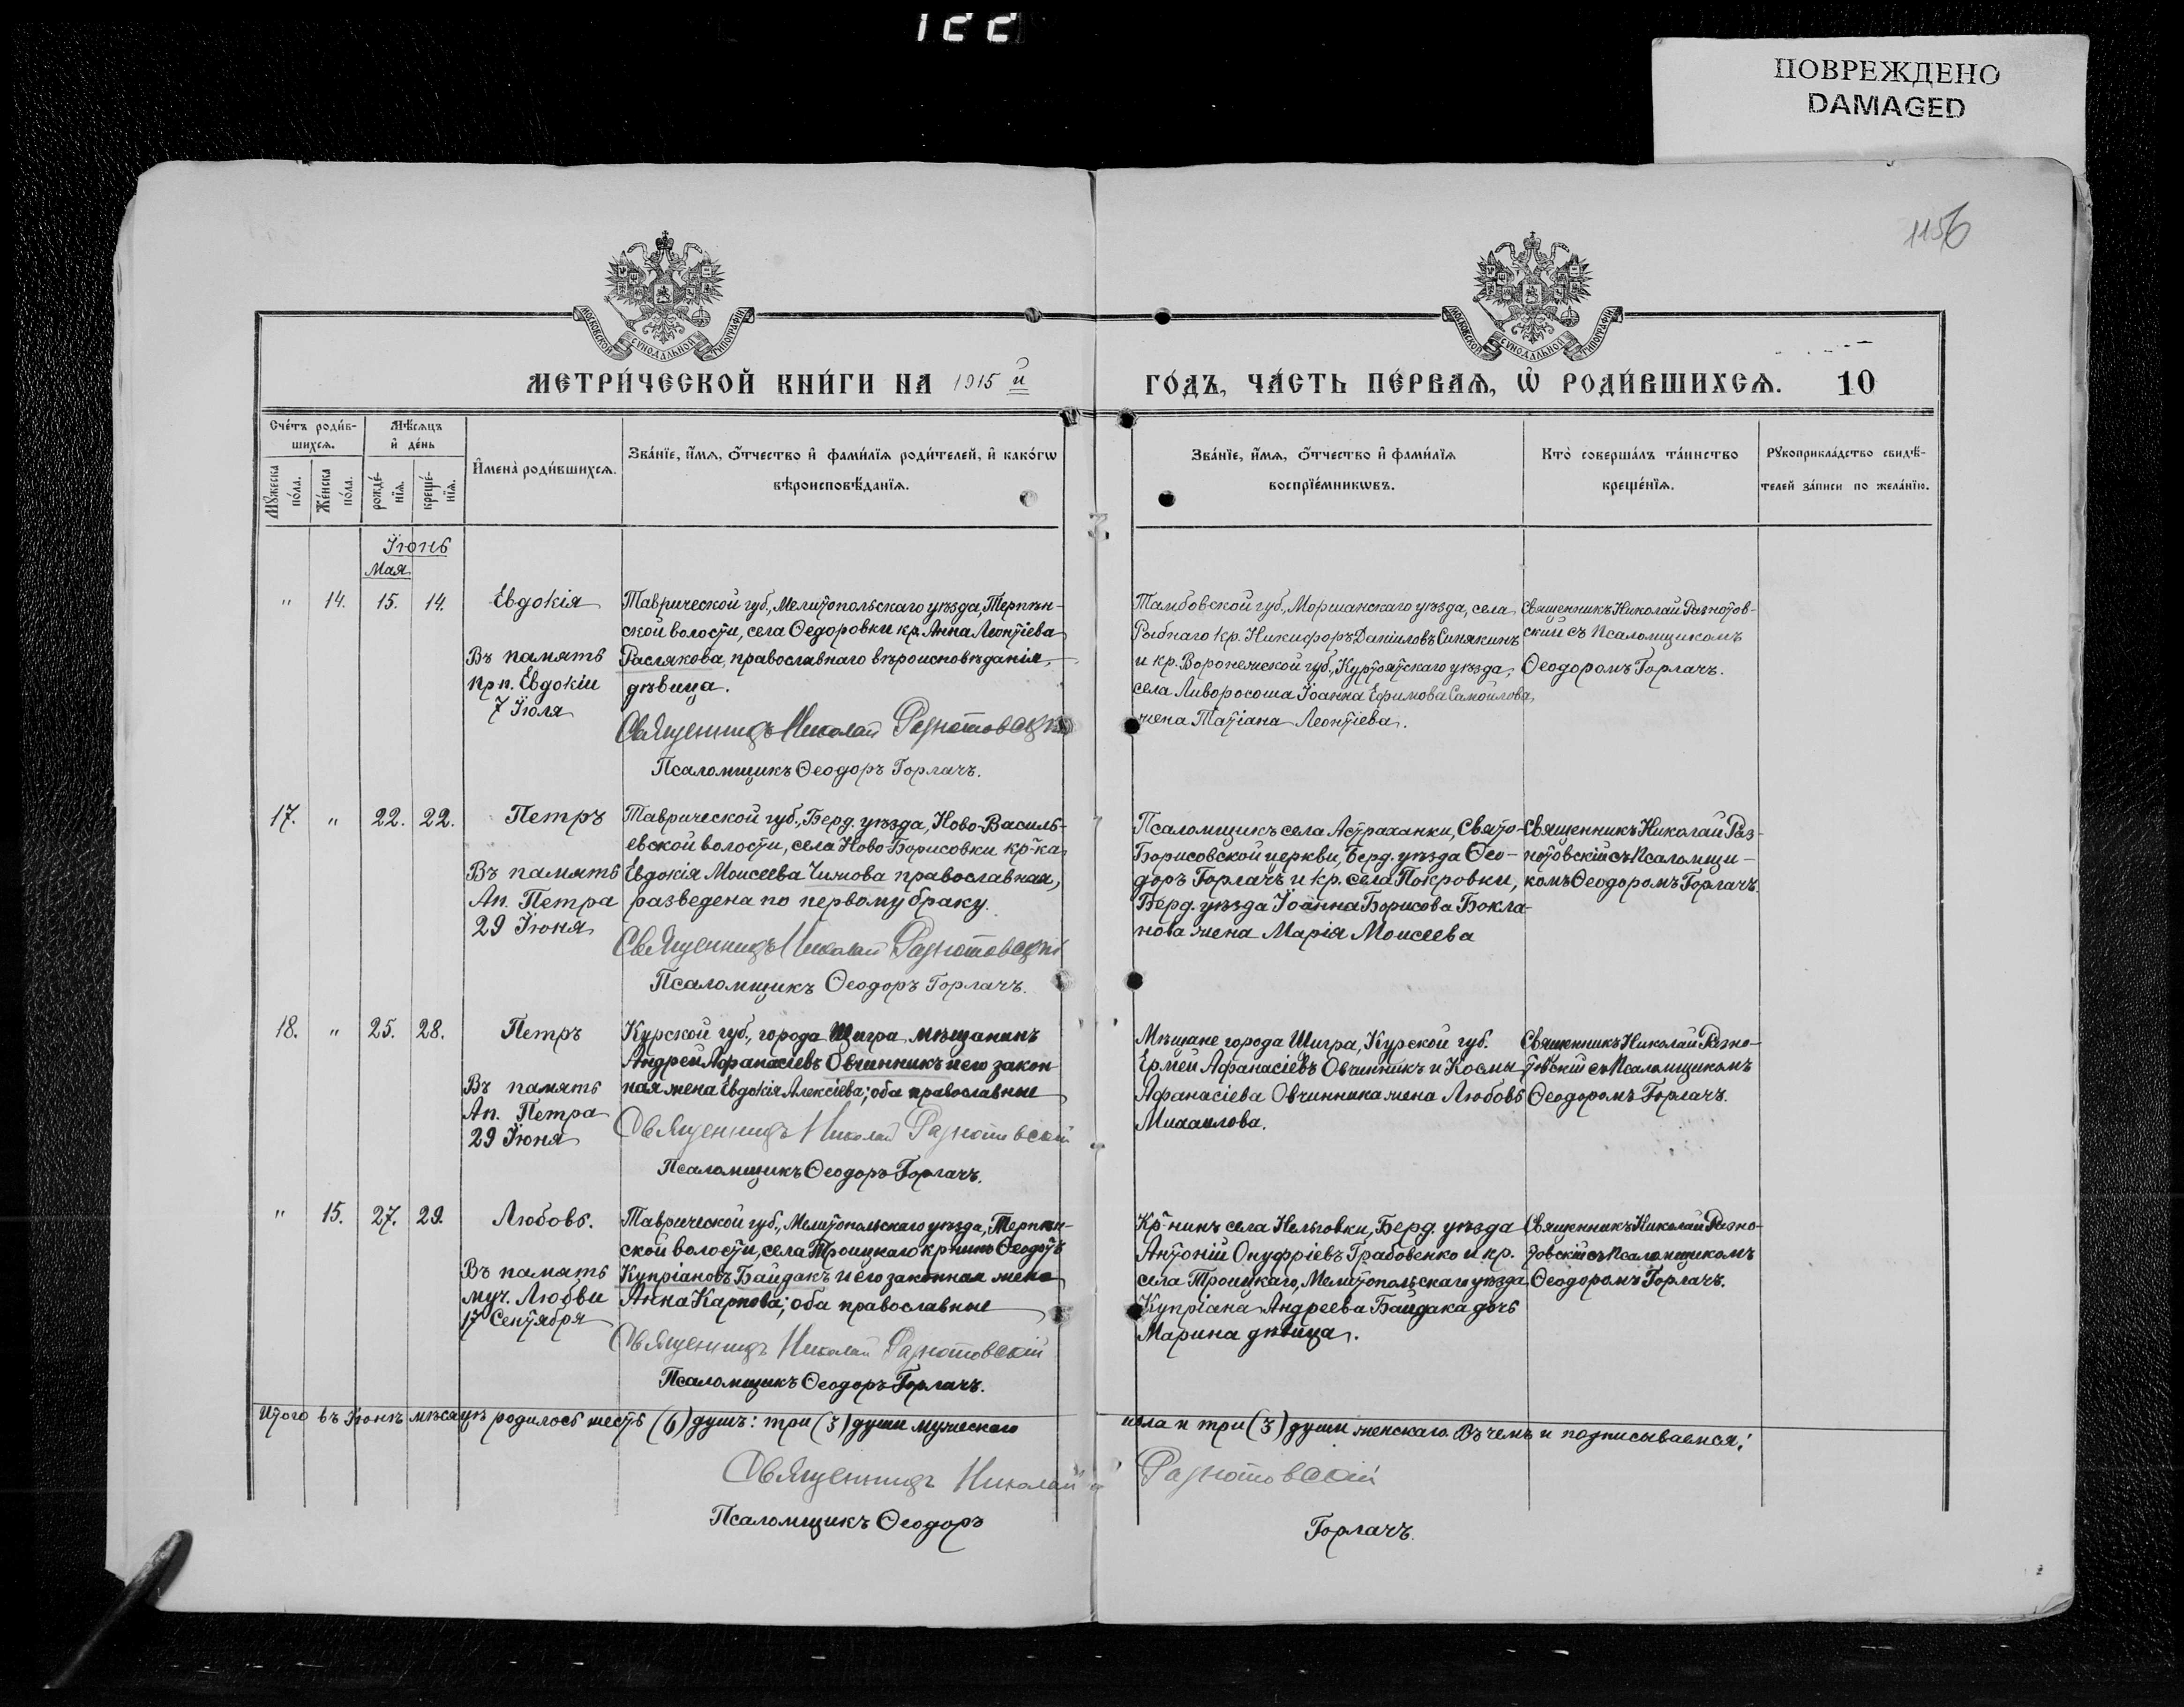 122
ПОВРЕЖДЕНО
DAMAGED
1156
МОСКОВСКОЙ СѴНОДАЛЬНОЙ ТИПОГРАФІИ
МОСКОВСКОЙ СѴНОДАЛЬНОЙ ТИПОГРАФІИ
МЕТРИ́ЧЕСКОЙ КНИ́ГИ НА 1915 й
ГО́ДЪ, ЧА́СТЬ ПЕ́РВАѦ, Ѡ҆ РОДИ́ВШИХСѦ. 10
Сче́тъ роди́в-
шихсѧ.
Мꙋ́жеска
по́ла.
Же́нска
по́ла.
Мѣ́сѧцъ
и҆ де́нь
рожде́-
нїѧ.
креще́-
нїѧ.
И҆мена̀ роди́вшихсѧ.
Зва́нїе, и҆́мѧ, ѻ҆́тчество и҆ фами́лїѧ роди́телей, и҆ како́гѡ
вѣроисповѣ́данїѧ.
Зва́нїе, и҆́мѧ, ѻ҆́тчество и҆ фами́лїѧ
воспрїе́мникѡвъ.
Кто̀ соверша́лъ та́инство
креще́нїѧ.
Рꙋкоприкла́дство свидѣ́-
телей за́писи по жела́нїю.
Іюнь
Мая
" 14. 15. 14. Евдокія
Въ память
прп. Евдокіи
7 Іюля
Таврической губ., Мелитопольскаго уѣзда, Терпѣн-
ской волости, села Ѳедоровки кр. Анна Леонтіева
Раслякова, православнаго вѣроисповѣданія,
дѣвица.
Священникъ Николай Разнотовскій
Псаломщикъ Ѳеодоръ Горлачъ.
Тамбовской губ., Моршанскаго уѣзда, села
Рыбнаго кр. Никифоръ Даніиловъ Синякинъ
и кр. Воронежской губ., уѣзда,
села Ливоросоша Іоанна Ефимова Самойлова,
жена Татіана Леонтіева.
Священникъ Николай Разнотов-
скій съ Псаломщикомъ
Ѳеодоромъ Горлачъ.
17. " 22. 22. Петръ
Въ память
Ап. Петра
29 Іюня
Таврической губ., Берд. уѣзда, Ново-Василь-
евской волости, села Ново-Борисовки кр-ка
Евдокія Моисеева Чижова православная,
разведена по первому браку.
Священникъ Николай Разнотовскій
Псаломщикъ Ѳеодоръ Горлачъ.
Псаломщикъ села Астраханки, Свято-
Борисовской церкви, Берд. уѣзда Ѳео-
доръ Горлачъ и кр. села Покровки,
Берд. уѣзда Іоанна Борисова Бокла-
нова жена Марія Моисеева
Священникъ Николай Раз-
нотовскій съ Псаломщи-
комъ Ѳеодоромъ Горлачъ.
18. " 25. 28. Петръ
Въ память
Ап. Петра
29 Іюня
Курской губ., города Щигра, мѣщанинъ
Андрей Афанасіевъ Овчинникъ и его закон-
ная жена Евдокія Алексіева; оба православные
Священникъ Николай Разнотовскій
Псаломщикъ Ѳеодоръ Горлачъ.
Мѣщане города Щигра, Курской губ.
Ермей Афанасіевъ Овчинникъ и Космы
Афанасіева Овчинника жена Любовь
Михаилова.
Священникъ Николай Разно-
товскій съ Псаломщикомъ
Ѳеодоромъ Горлачъ.
" 15. 27. 29. Любовь.
Въ память
муч. Любви
17 Сентября
Таврической губ., Мелитопольскаго уѣзда, Терпѣн-
ской волости, села Троицкаго кр-нинъ Ѳеодотъ
Купріановъ Байдакъ и его законная жена
Анна Карпова; оба православные
Священникъ Николай Разнотовскій
Псаломщикъ Ѳеодоръ Горлачъ.
Кр-нинъ села Нельговки, Берд. уѣзда
Антоній Онуфріевъ Грабовенко и кр.
села Троицкаго, Мелитопольскаго уѣзда
Купріана Андреева Байдака дочь
Марина дѣвица.
Священникъ Николай Разно-
товскій съ Псаломщикомъ
Ѳеодоромъ Горлачъ.
Итого въ Іюнѣ мѣсяцѣ родилось шесть (6) душъ: три (3) души мужескаго
пола и три (3) души женскаго. Въ чемъ и подписываемся:
Священникъ Николай Разнотовскій
Псаломщикъ Ѳеодоръ Горлачъ.